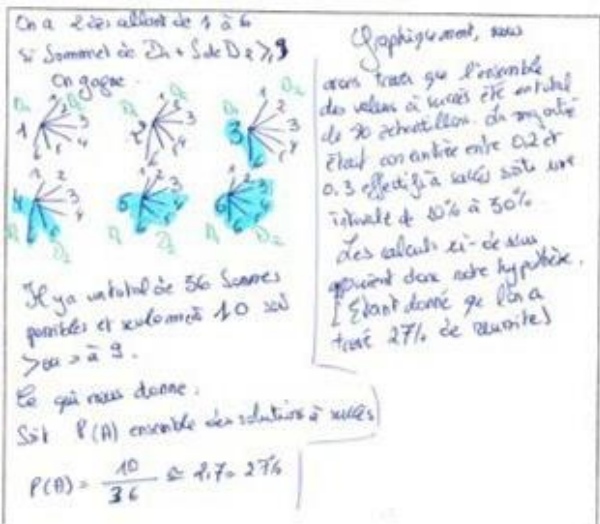 On a 2 dés allant de 1 à 6
Si Sommet de D1 + S de D2 >, 9
On gagne.
D1 1 2 3 4 5 6 D2
D1 2 1 2 3 4 5 6 D2
D1 3 1 2 3 4 5 6
4 1 2 3 4 5 6 D2
D1 5 1 2 3 4 5 6 D2
D1 6 1 2 3 4 5 6 D2
Il y a un total de 36 Sommes
possibles et seulement 10 soit
> ou = à 9.
Ce qui nous donne.
Soit P(A) ensemble des solutions à succès
P(A) = 10/36 ≈ 2,7 = 27%
Graphiquement, nous
avons que l'ensemble
des valeurs à succès été un total
de échantillon. La majorité
était concentrée entre 0.2 et
0.3 effectif à succès soit une
de 10% à 50%
Les calculs ci-dessus
appuient donc notre hypothèse.
[Etant donné que l'on a
trouvé 27% de réussite]